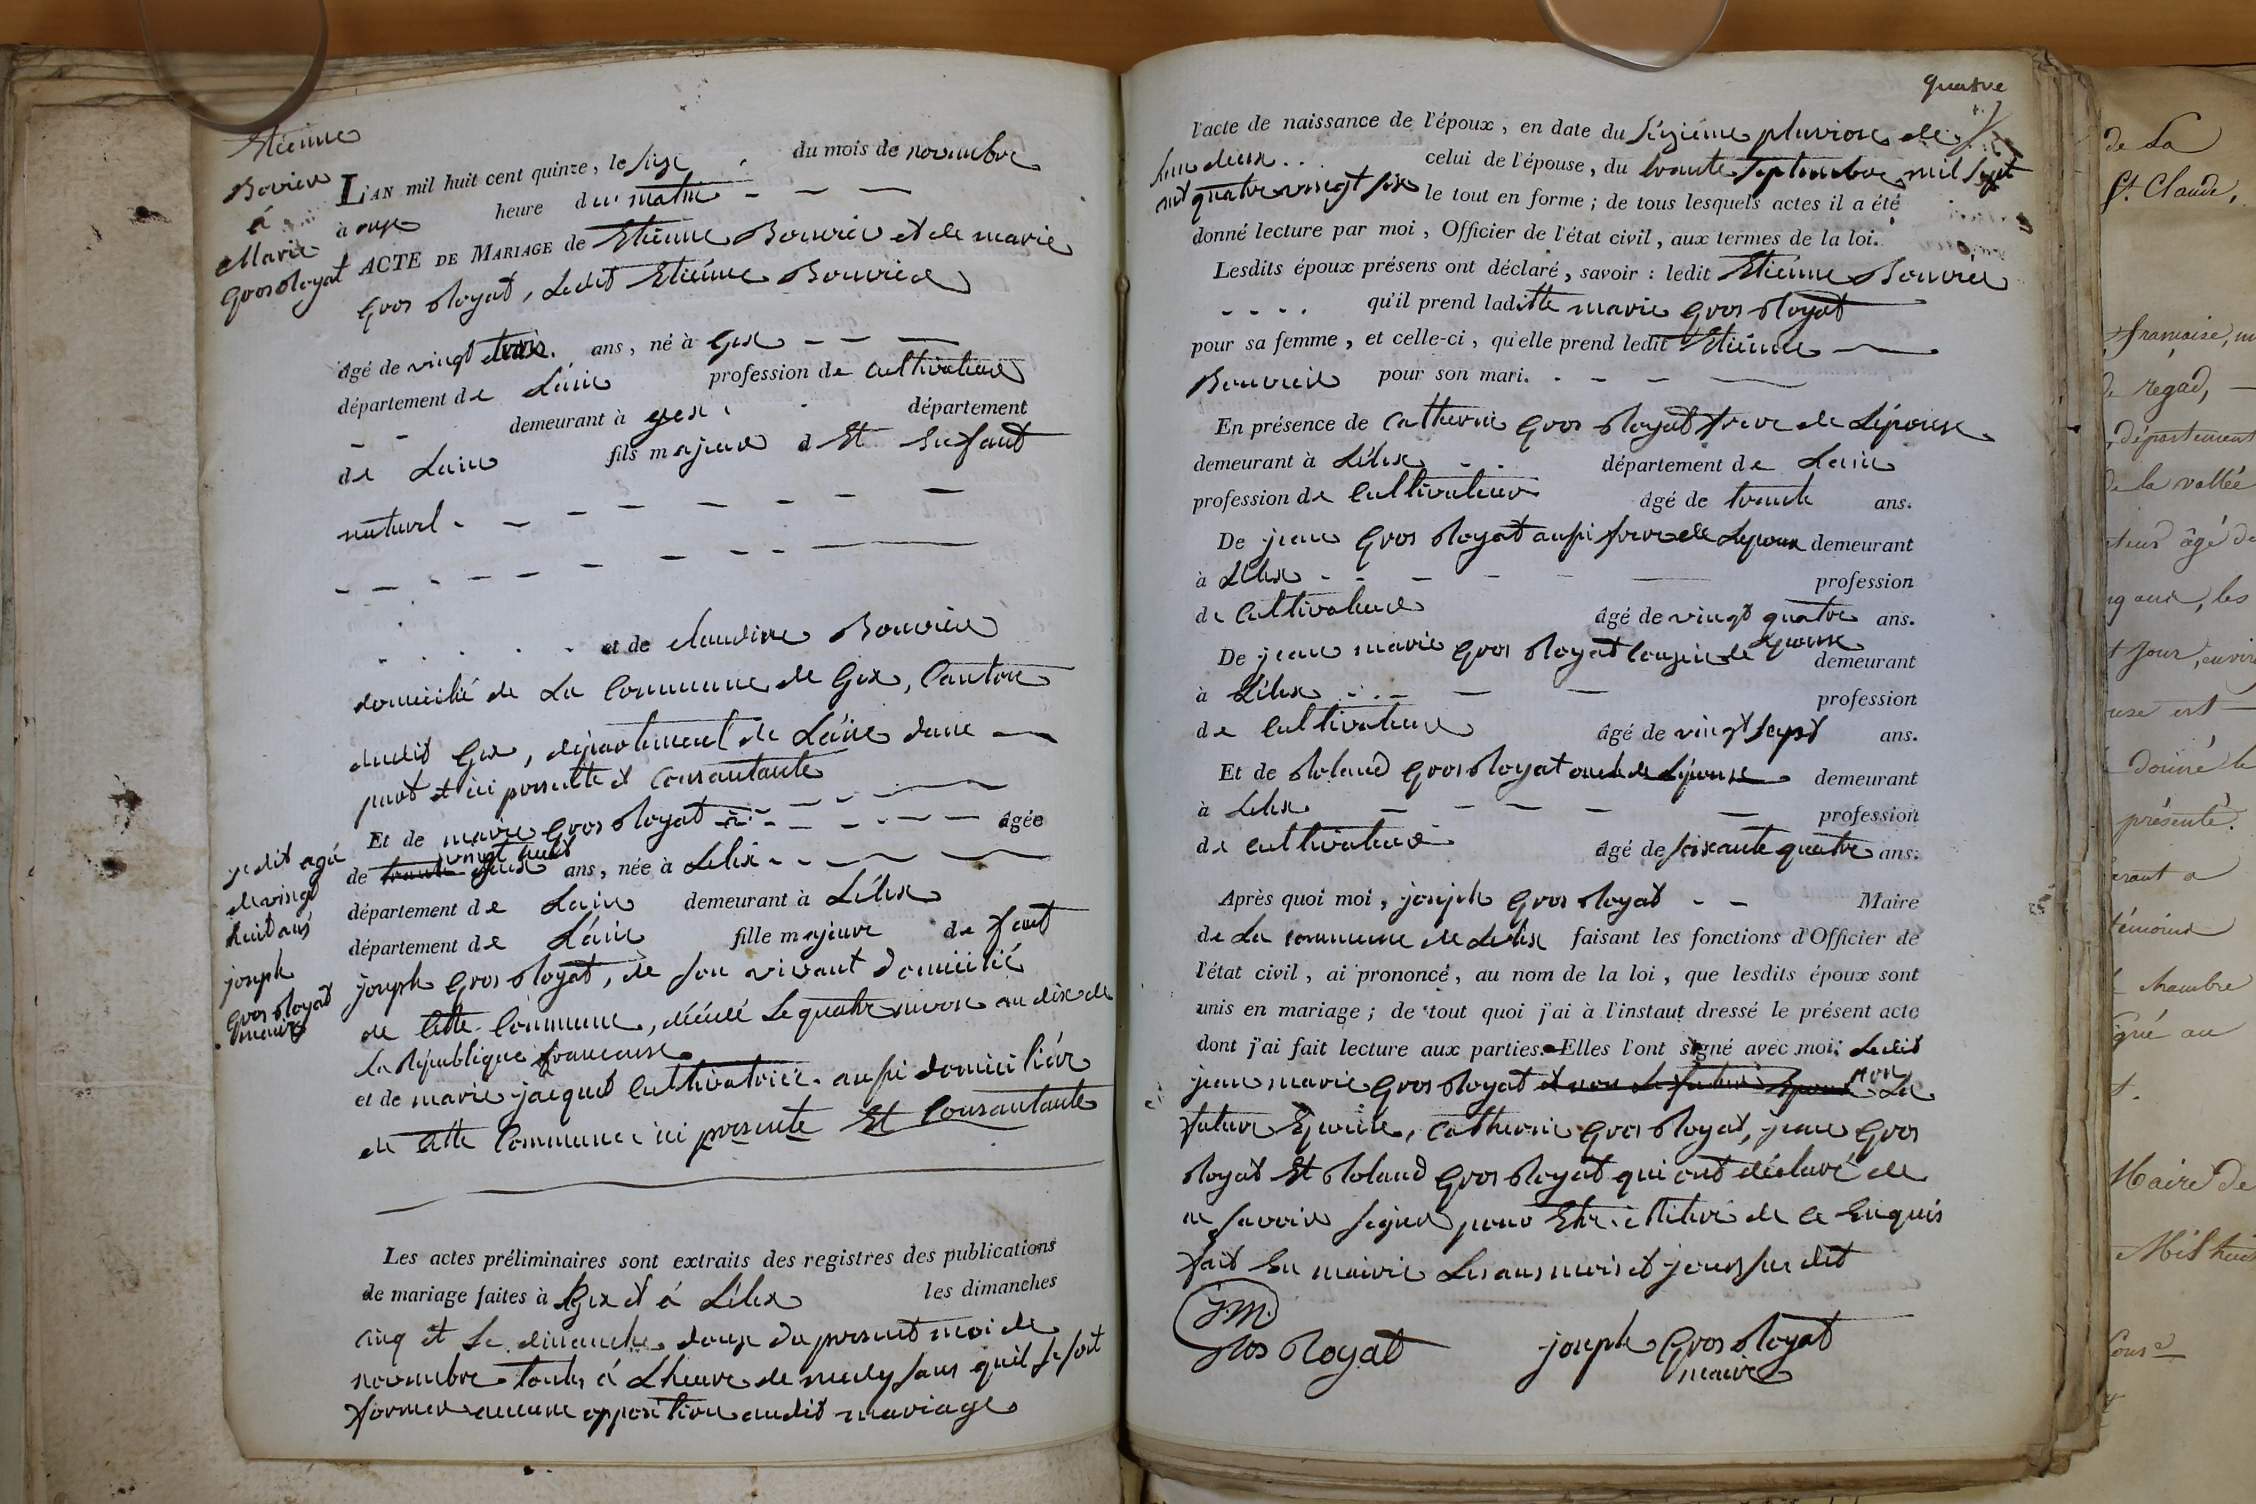 Etienne
Bovier
à
Marie
Gros Royat
L'AN mil huit cent quinze, le seize du mois de novembre
à onze heure du matin
ACTE DE MARIAGE de Etienne Bouvier et de marie
Gros Royat, Ledit Etienne Bouvier
âgé de vingt ans, né à Gex
département de Lain profession de cultivateur
demeurant à gex département
de Lain fils majeur Et Enfant
naturel
et de claudine Bouvier
domicilié de La Commune de Gex, Canton
dudit Gex, département de Lain dune
part et ici presente et consantante
Et de marie Gros Royat âgée
vingt huit
de trante ans, née à Lelex
département de Lain demeurant à Lélex
département de Lain fille majeure de faut
joseph Gros Royat, de son vivant domicilié
de cette Commune, décédé Le quatre nivose an dix de
La République francaise
et de marie jacquet cultivatrice aussi domiciliér
de cette Commune ici presente Et Consantante
susdit agé
de vingt
huit ans
joseph
Gros Royat
maire
Les actes préliminaires sont extraits des registres des publications
de mariage faites à Gex et à Lélex les dimanches
cinq et Le dimanche douze du present moi de
novembre toutes à Lheure de midy sans quil se soit
former aucune opposition audit mariage
quatre
l'acte de naissance de l'époux, en date du seizième pluviose de
Lan deux celui de l'épouse, du trante septembre mil sept
cent quatre vingt six le tout en forme; de tous lesquels actes il a été
donné lecture par moi, Officier de l'état civil, aux termes de la loi.
Lesdits époux présens ont déclaré, savoir : ledit Etienne Bouvier
qu'il prend laditte marie Gros Royat
pour sa femme, et celle-ci, qu'elle prend ledit Etienne
Bouvier pour son mari.
En présence de Catherin Gros Royat frere de Lépouse
demeurant à Lélex département de Lain
profession de Cultivateur âgé de trante ans.
De jean Gros Royat aussi frere de Lepouse demeurant
à Lélex profession
de Cultivateur âgé de vingt quatre ans.
De jean marie Gros Royat Cousin de Lépouse demeurant
à Lélex profession
de Cultivateur âgé de vingt sept ans.
Et de Roland Gros Royat oncle de Lépouse demeurant
à Lelex profession
de cultivateur âgé de soixante quatre ans.
Après quoi moi, joseph Gros Royat Maire
de La commune de Lelex faisant les fonctions d'Officier de
l'état civil, ai prononcé, au nom de la loi, que lesdits époux sont
unis en mariage; de tout quoi j'ai à l'instant dressé le présent acte
dont j'ai fait lecture aux parties. Elles l'ont signé avec moi. Ledit
jean marie Gros Royat et non Le futur Epoux non La
future Epouse, Catherin Gros Royat, jean Gros
Royat Et Roland Gros Royat qui ont déclaré de
ne savoir signer pour de ce Enquis
fait En mairie Les ans mois et jours sus dit
J. M.
Gros Royat
joseph Gros Royat
maire
de La
St. Claude,
française,
de regad,
département
de la vallée
âgé de
les
jour,
est
donné le
présenté.
a
témoins
chambre
gné au
Maire de
Mil huit